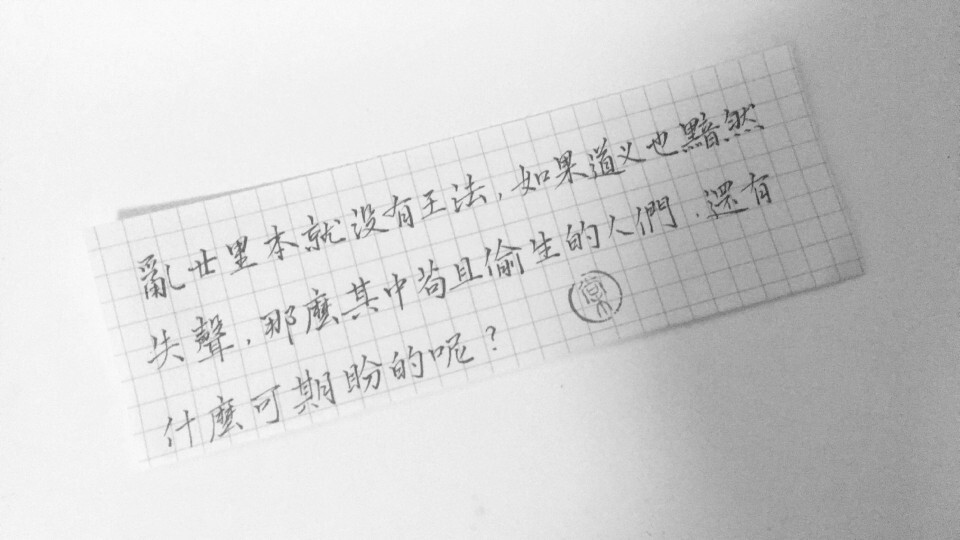 亂世里本就没有王法，如果道义也黯然
失聲，那麼其中苟且偷生的人們，還有
什麼可期盼的呢？